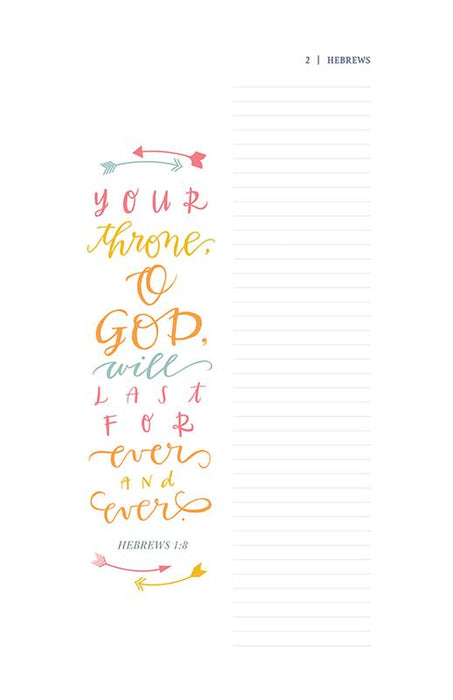 2 | HEBREWS
YOUR
throne,
O
GOD,
will
LAST
FOR
ever
AND
ever.
HEBREWS 1:8